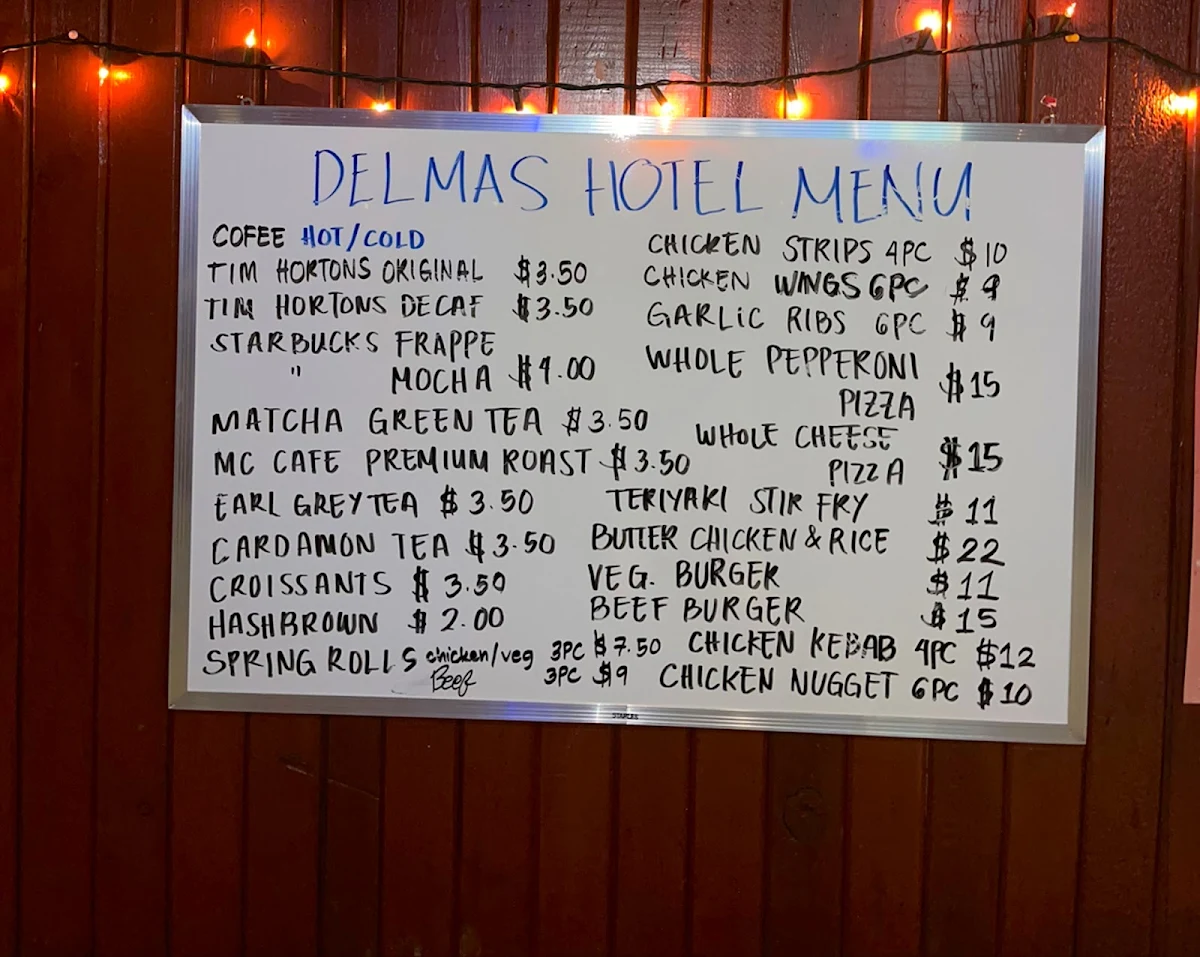 DELMAS HOTEL MENU
COFEE HOT/COLD
TIM HORTONS ORIGINAL $3.50
TIM HORTONS DECAF $3.50
STARBUCKS FRAPPE
" MOCHA $4.00
MATCHA GREEN TEA $3.50
MC CAFE PREMIUM ROAST $3.50
EARL GREY TEA $3.50
CARDAMON TEA $3.50
CROISSANTS $3.50
HASHBROWN $2.00
SPRING ROLLS chicken/veg 3PC $7.50
Beef 3PC $9
CHICKEN STRIPS 4PC $10
CHICKEN WINGS 6PC $9
GARLIC RIBS 6PC $9
WHOLE PEPPERONI
PIZZA $15
WHOLE CHEESE
PIZZA $15
TERIYAKI STIR FRY $11
BUTTER CHICKEN & RICE $22
VEG. BURGER $11
BEEF BURGER $15
CHICKEN KEBAB 4PC $12
CHICKEN NUGGET 6PC $10
STAPLES